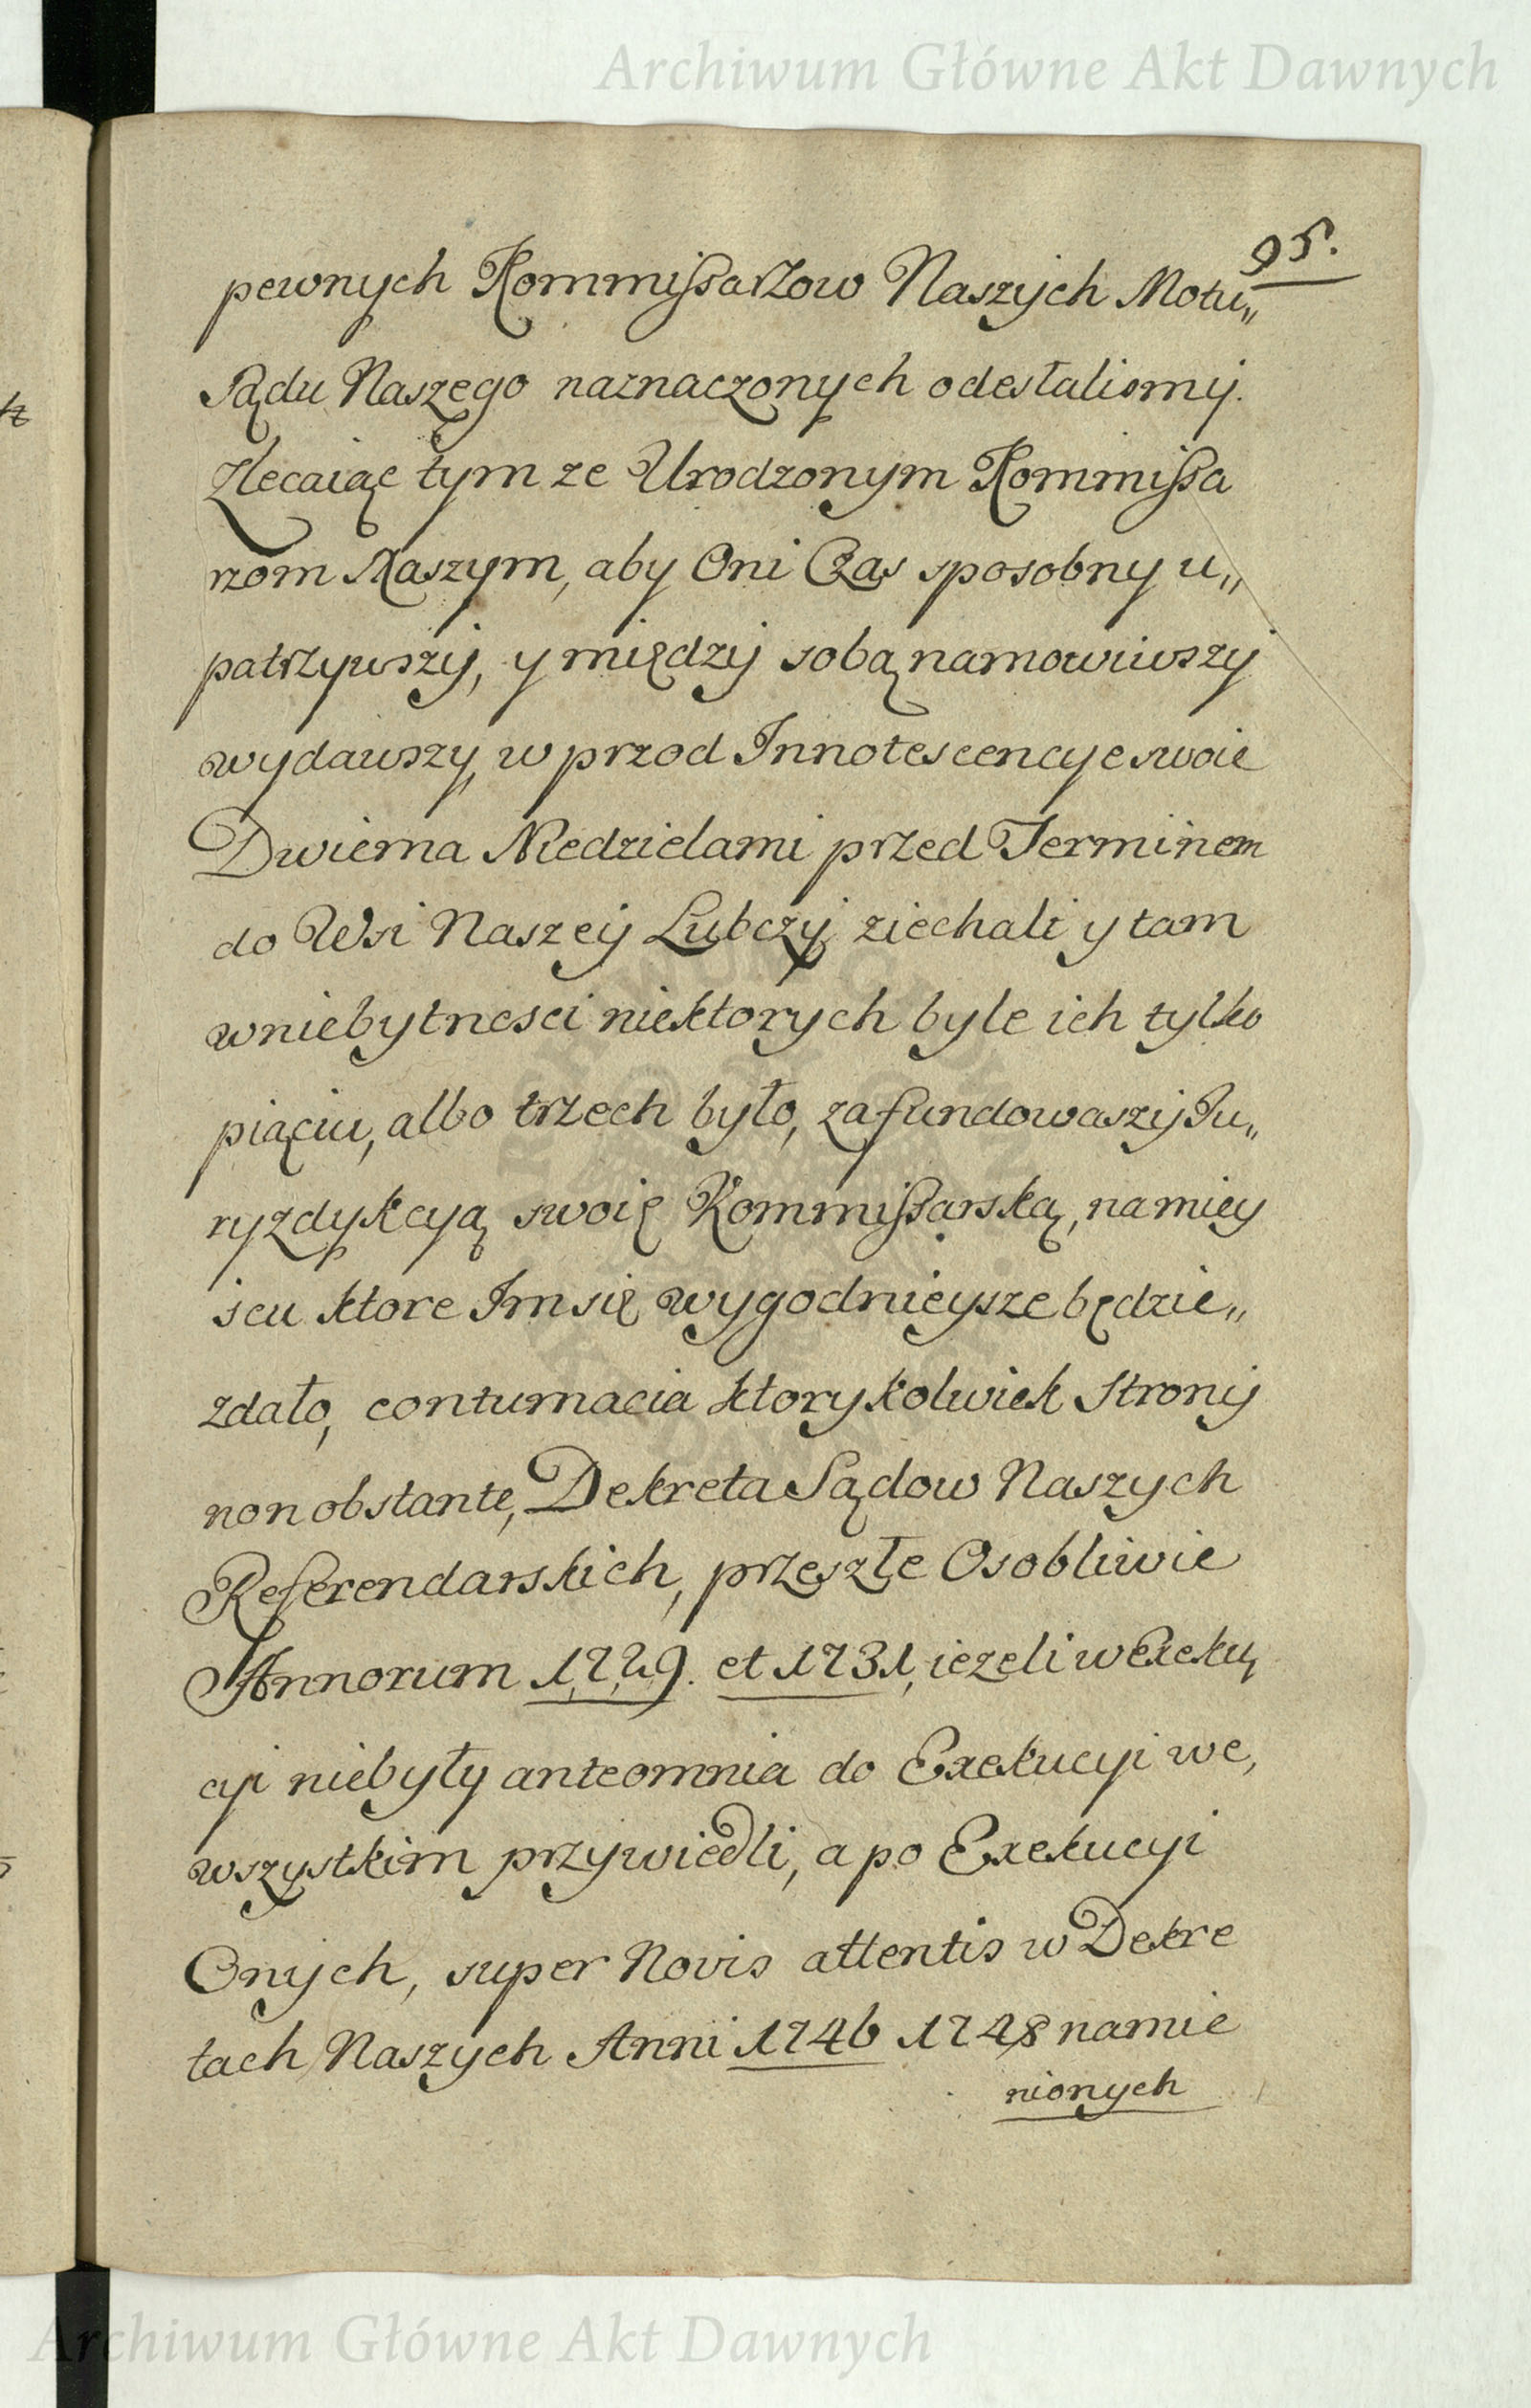 Archiwum Główne Akt Dawnych
95.
pewnych Kommissarzow Naszych Motu„
Sądu Naszego naznaczonych odesłalismy.
Zlecaiąc tym ze Urodzonym Kommissa
rzom Naszym, aby Oni Czas sposobny u„
patrzywszy, y między sobą namowiwszy
wydawszy, w przod Innotescencye swoie
Dwiema Niedzielami przed Terminem
do Wsi Naszey Lubczy ziechali y tam
w niebytnosci niektorych byle ich tylko
piąciu, albo trzech było, zafundowaszy Ju„
ryzdykcyą swoię Kommissarską, na miey
scu ktore Im się wygodnieysze będzie„
zdało, contumacia ktorykolwiek Strony
non obstante, Dekreta Sądow Naszych
Referendarskich, przeszłe Osobliwie
Annorum 1729. et 1731, iezeli w Exeku„
cyi niebyły anteomnia do Exekucyi we,
wszystkim przywiedli, a po Exekucyi
Onych, super Novis attentis w Dekre
tach Naszych Anni 1746 1748 namie
nionych
Archiwum Główne Akt Dawnych